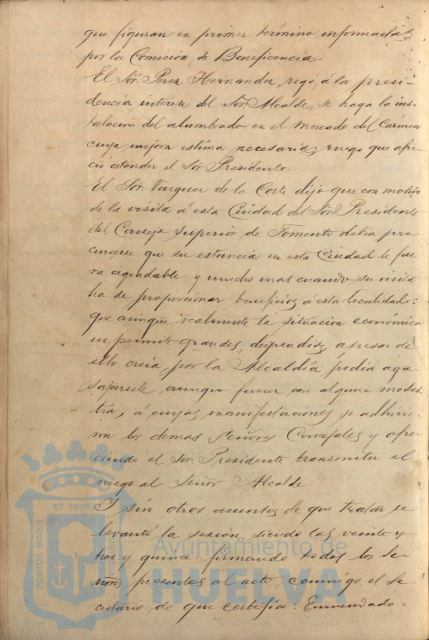 que figuran en primer término informadas
por la Comision de Beneficencia.
El Sor. Perez Hernandez, rogó á la presi-
dencia interese del Sor Alcalde, se haga la ins-
talacion del alumbrado en el Mercado del Cármen
cuya mejora estima necesaria, ruego que ofre-
ció atender el Sor Presidente.
El Sor Vazquez de la Corte dijo que con motivo
de la visita á esta Ciudad del Sor Presidente
del Consejo Superior de Fomento debia pro
curarse que su estancia en esta Ciudad le fue
ra agradable y mucho mas cuando su visita
ha de proporcionar beneficios á esta localidad:
que aunque realmente la situacion económica
no permite grandes dispendios, apesar de
ello creia, por la Alcaldía podria aga
sajarsele aunque fuera con alguna modes
tia, á cuyas manifestaciones se adhirie
ron los demas Señores Concejales y ofre-
ciendo el Sor Presidente transmitir el
ruego al Señor Alcalde.
Y sin otros asuntos de que tratar se
levantó la sesión, siendo las veinte y
dos y quince firmando todos los Se-
ñores presentes al acto, conmigo el Se
cretario de que certifico. Enmendado=
PORTUS MARIS
ET TERRAE
Ayuntamiento de
HUELVA